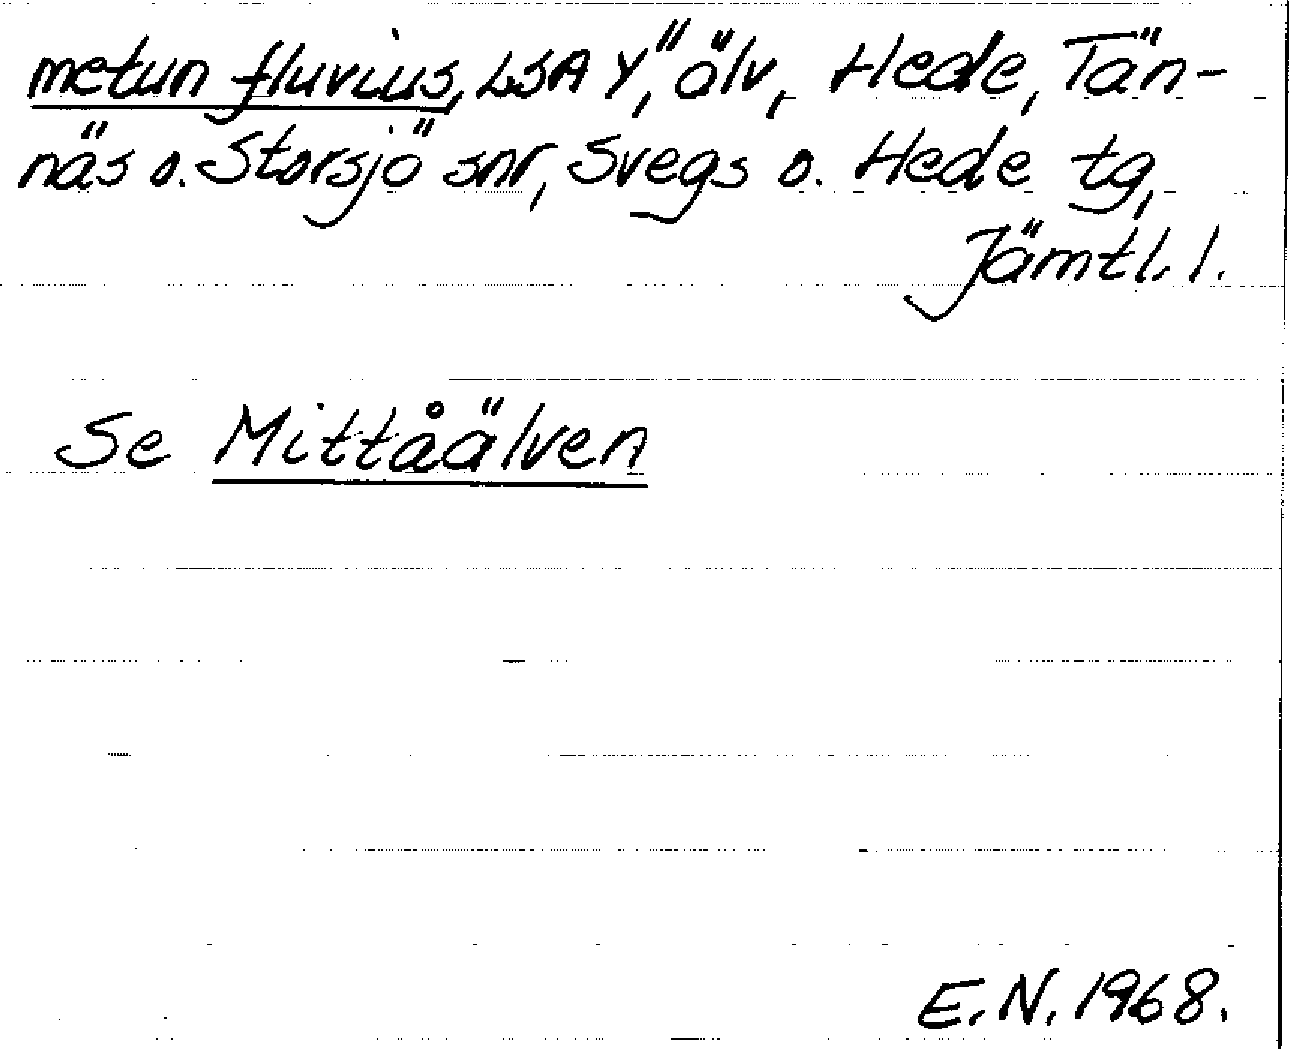 metun fluvius, LSA Y", älv, Hede, Tän-
näs o. Storsjö snr, Svegs o. Hede tg,
Jämtl. l.
Se Mittåälven
E.N. 1968.